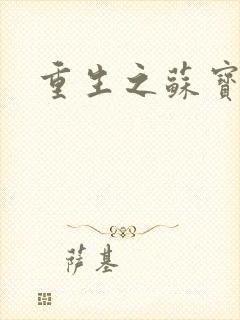 重生之蘇寶
萨基